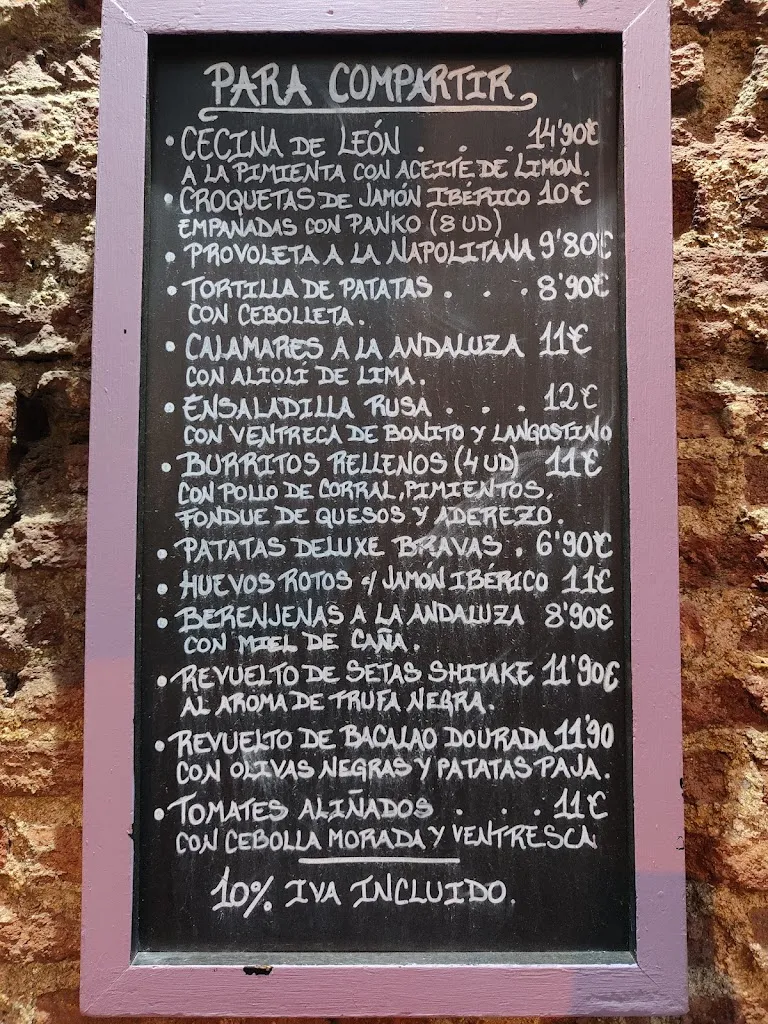 PARA COMPARTIR
• CECINA DE LEÓN . . . 14'90€
A LA PIMIENTA CON ACEITE DE LIMÓN.
• CROQUETAS DE JAMÓN IBÉRICO 10€
EMPANADAS CON PANKO (8 UD)
• PROVOLETA A LA NAPOLITANA 9'80€
• TORTILLA DE PATATAS . . . 8'90€
CON CEBOLLETA.
• CALAMARES A LA ANDALUZA 11€
CON ALIOLÍ DE LIMA.
• ENSALADILLA RUSA . . . 12€
CON VENTRECA DE BONITO Y LANGOSTINO
• BURRITOS RELLENOS (4 UD) 11€
CON POLLO DE CORRAL, PIMIENTOS,
FONDUE DE QUESOS Y ADEREZO.
• PATATAS DELUXE BRAVAS . 6'90€
• HUEVOS ROTOS c/ JAMÓN IBÉRICO 11€
• BERENJENAS A LA ANDALUZA 8'90€
CON MIEL DE CAÑA.
• REVUELTO DE SETAS SHITAKE 11'90€
AL AROMA DE TRUFA NEGRA.
• REVUELTO DE BACALAO DOURADA 11'90
CON OLIVAS NEGRAS Y PATATAS PAJA.
• TOMATES ALIÑADOS . . . 11€
CON CEBOLLA MORADA Y VENTRESCA
10% IVA INCLUIDO.